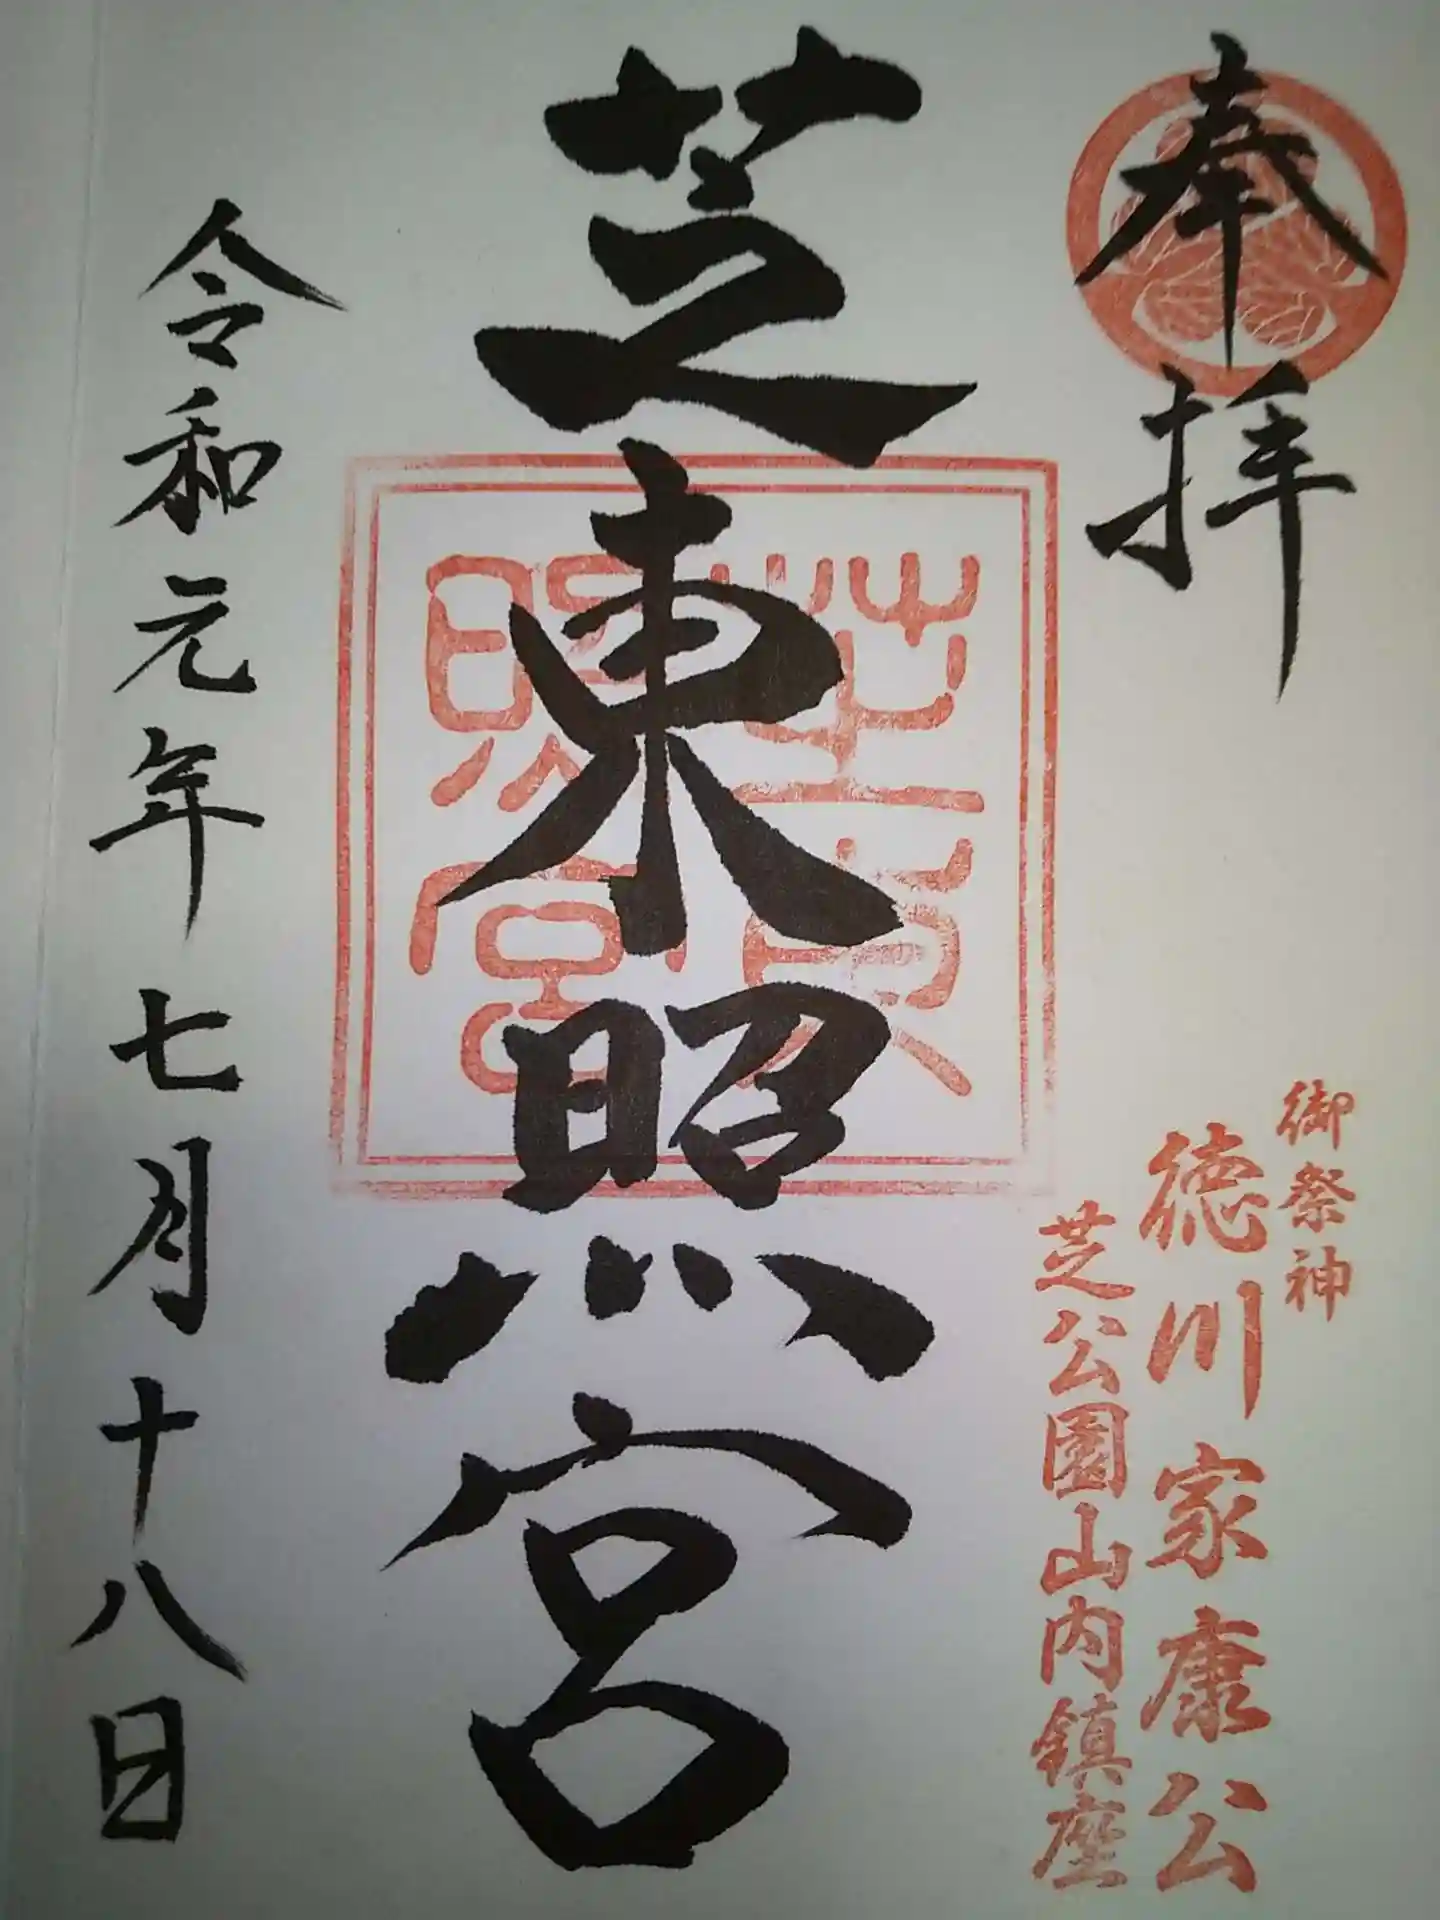 奉拝
御祭神
徳川家康公
芝公園山内鎮座
芝東照宮
芝東
照宮
令和元年 七月十八日